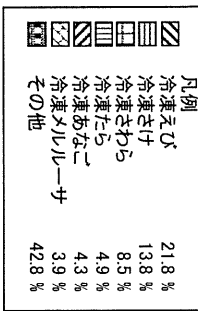 凡例
冷凍えび 21.8 %
冷凍さけ 13.8 %
冷凍さわら 8.5 %
冷凍たら 4.9 %
冷凍あなご 4.3 %
冷凍メルルーサ 3.9 %
その他 42.8 %